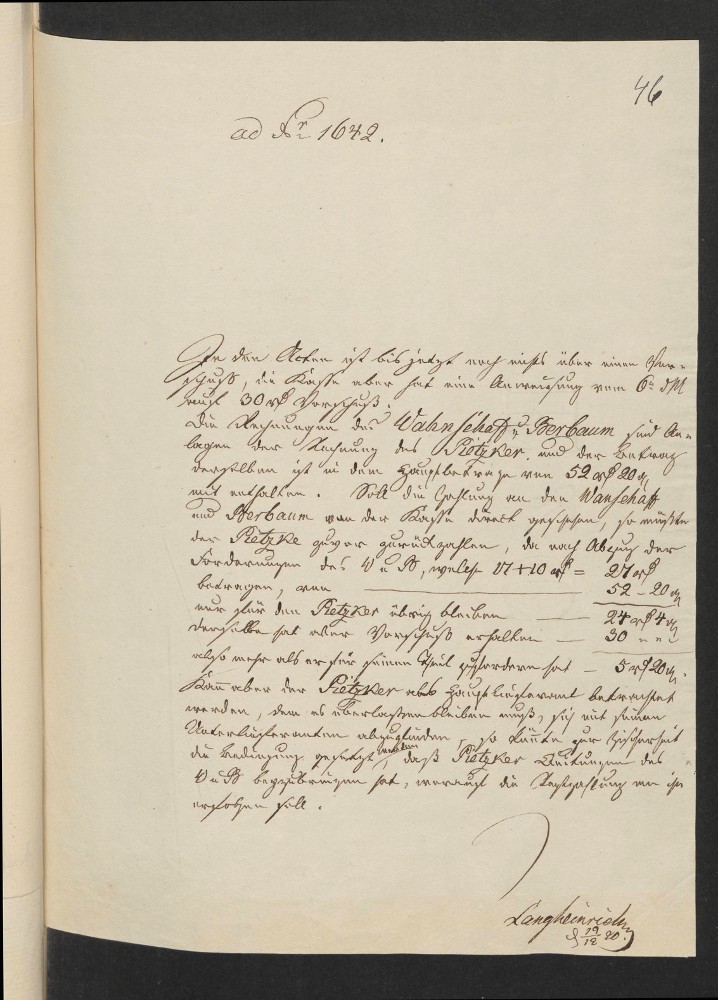 46
ad Nr 1642.
In den Acten ist bis jetzt noch nichts über einen Vor-
schuß, die Kasse aber hat eine Anweisung vom 6n
auf 30 rℓ Vorschuß.
Die Rechnungen des Wahnschaff u Berbaum sind An-
lagen der Rechnung des Pietzker. und der Betrag
derselben ist in dem Hauptbetrage von 52 rℓ 20 gr
mit enthalten. Soll die Zahlung an den Wanschaff
und Berbaum von der Kasse direct geschehen, so müßte
der Pietzke zuvor zurückzahlen, da nach Abzug der
Forderungen des W u B, welche 17+10 rℓ = 27 rℓ
betragen, von 52 - 20 gr
nur für den Pietzker übrig bleiben 24 rℓ 4 gr
derselbe hat aber Vorschuß erhalten 30 " "
also mehr als er für seinen Theil zu fordern hat - 5 rℓ 20 gr.
Kann aber der Pietzker als Hauptlieferant betrachtet
werden, dem es überlassen bleiben muß, sich mit seinen
Unterlieferanten abzufinden, so könnte zur Sicherheit
die Bedingung gesetzt werden, daß Pietzker Quittungen des
W u B beizubringen hat, worauf die Restzahlung an ihn
erfolgen soll.
Langheinrich
d 19/12 20.